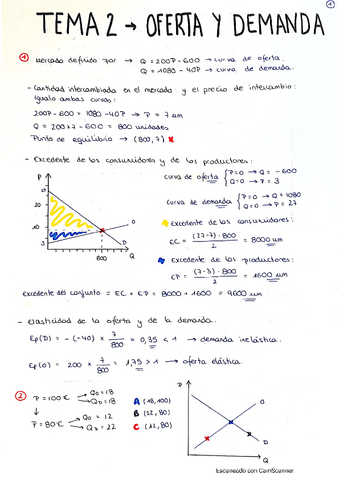 1
TEMA 2 → OFERTA Y DEMANDA
1 Mercado definido por → Q = 200P - 600 → curva de oferta.
Q = 1080 - 40P → curva de demanda.
- Cantidad intercambiada en el mercado y el precio de intercambio:
Igualo ambas curvas:
200P - 600 = 1080 - 40P → P = 7 um
Q = 200 x 7 - 600 = 800 unidades
Punto de equilibrio → (800, 7) x
- Excedente de los consumidores y de los productores:
curva de oferta { P=0 → Q = -600
Q=0 → P = 3
curva de demanda { P=0 → Q = 1080
Q=0 → P = 27
P
20
10
3
800
O
D
Q
Excedente de los consumidores:
EC = (27-7)·800 / 2 = 8000 um
Excedente de los productores:
EP = (7-3)·800 / 2 = 1600 um
Excedente del conjunto = EC + EP = 8000 + 1600 = 9600 um
- Elasticidad de la oferta y de la demanda.
Ep(D) = -(-40) x 7/800 = 0,35 < 1 → demanda inelástica.
Ep(O) = 200 x 7/800 = 1,75 > 1 → oferta elástica.
2 P = 100€ → QO = 18
QD = 18
↓
P = 80€ → QO = 12
QD = 22
A (18, 100)
B (22, 80)
C (12, 80)
P
O
D
Q
Escaneado con CamScanner